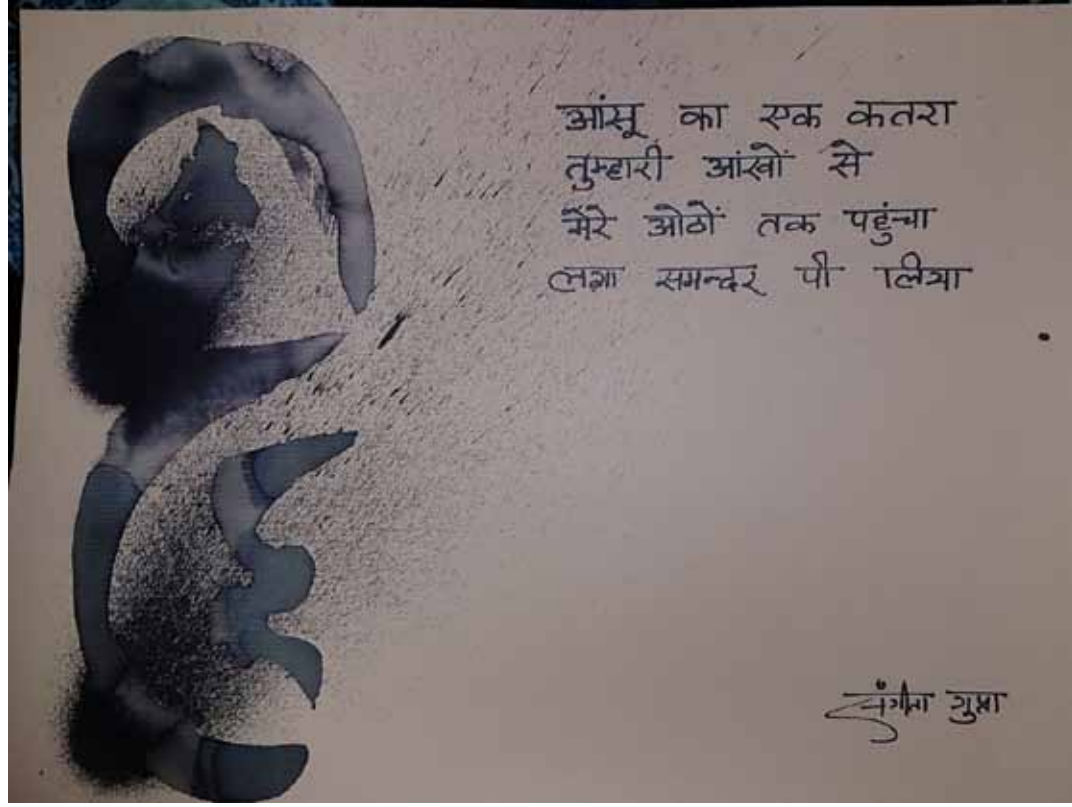 आंसू का एक कतरा
तुम्हारी आंखों से
मेरे ओठों तक पहुंचा
लगा समन्दर पी लिया
संगीता गुप्ता